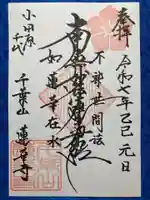 奉拝
令和七年乙巳元日
不染世間法
南無妙法蓮華経
如蓮華在水
小田原
千代
千葉山
蓮華寺